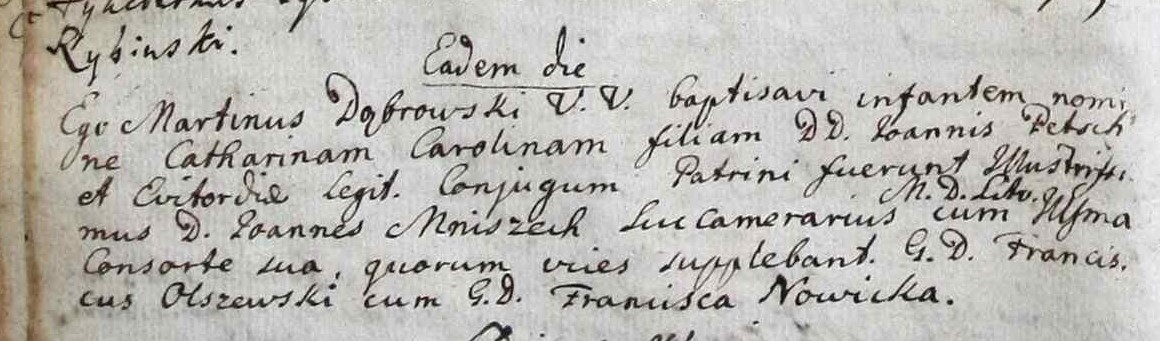 Rybinski.
Eadem die
Ego Martinus Dąbrowski V. V. baptisavi infantem nomi
ne Catharinam Carolinam filiam DD. Joannis Petsch
et legit. Conjugum Patrini fuerunt Illustrissi
M. D. Litv.
mus D. Joannes Mniszech Succamerarius cum Illsma
Consorte sua, quorum vices supplebant. G. D. Francis.
cus Olszewski cum G. D. Francisca Nowicka.